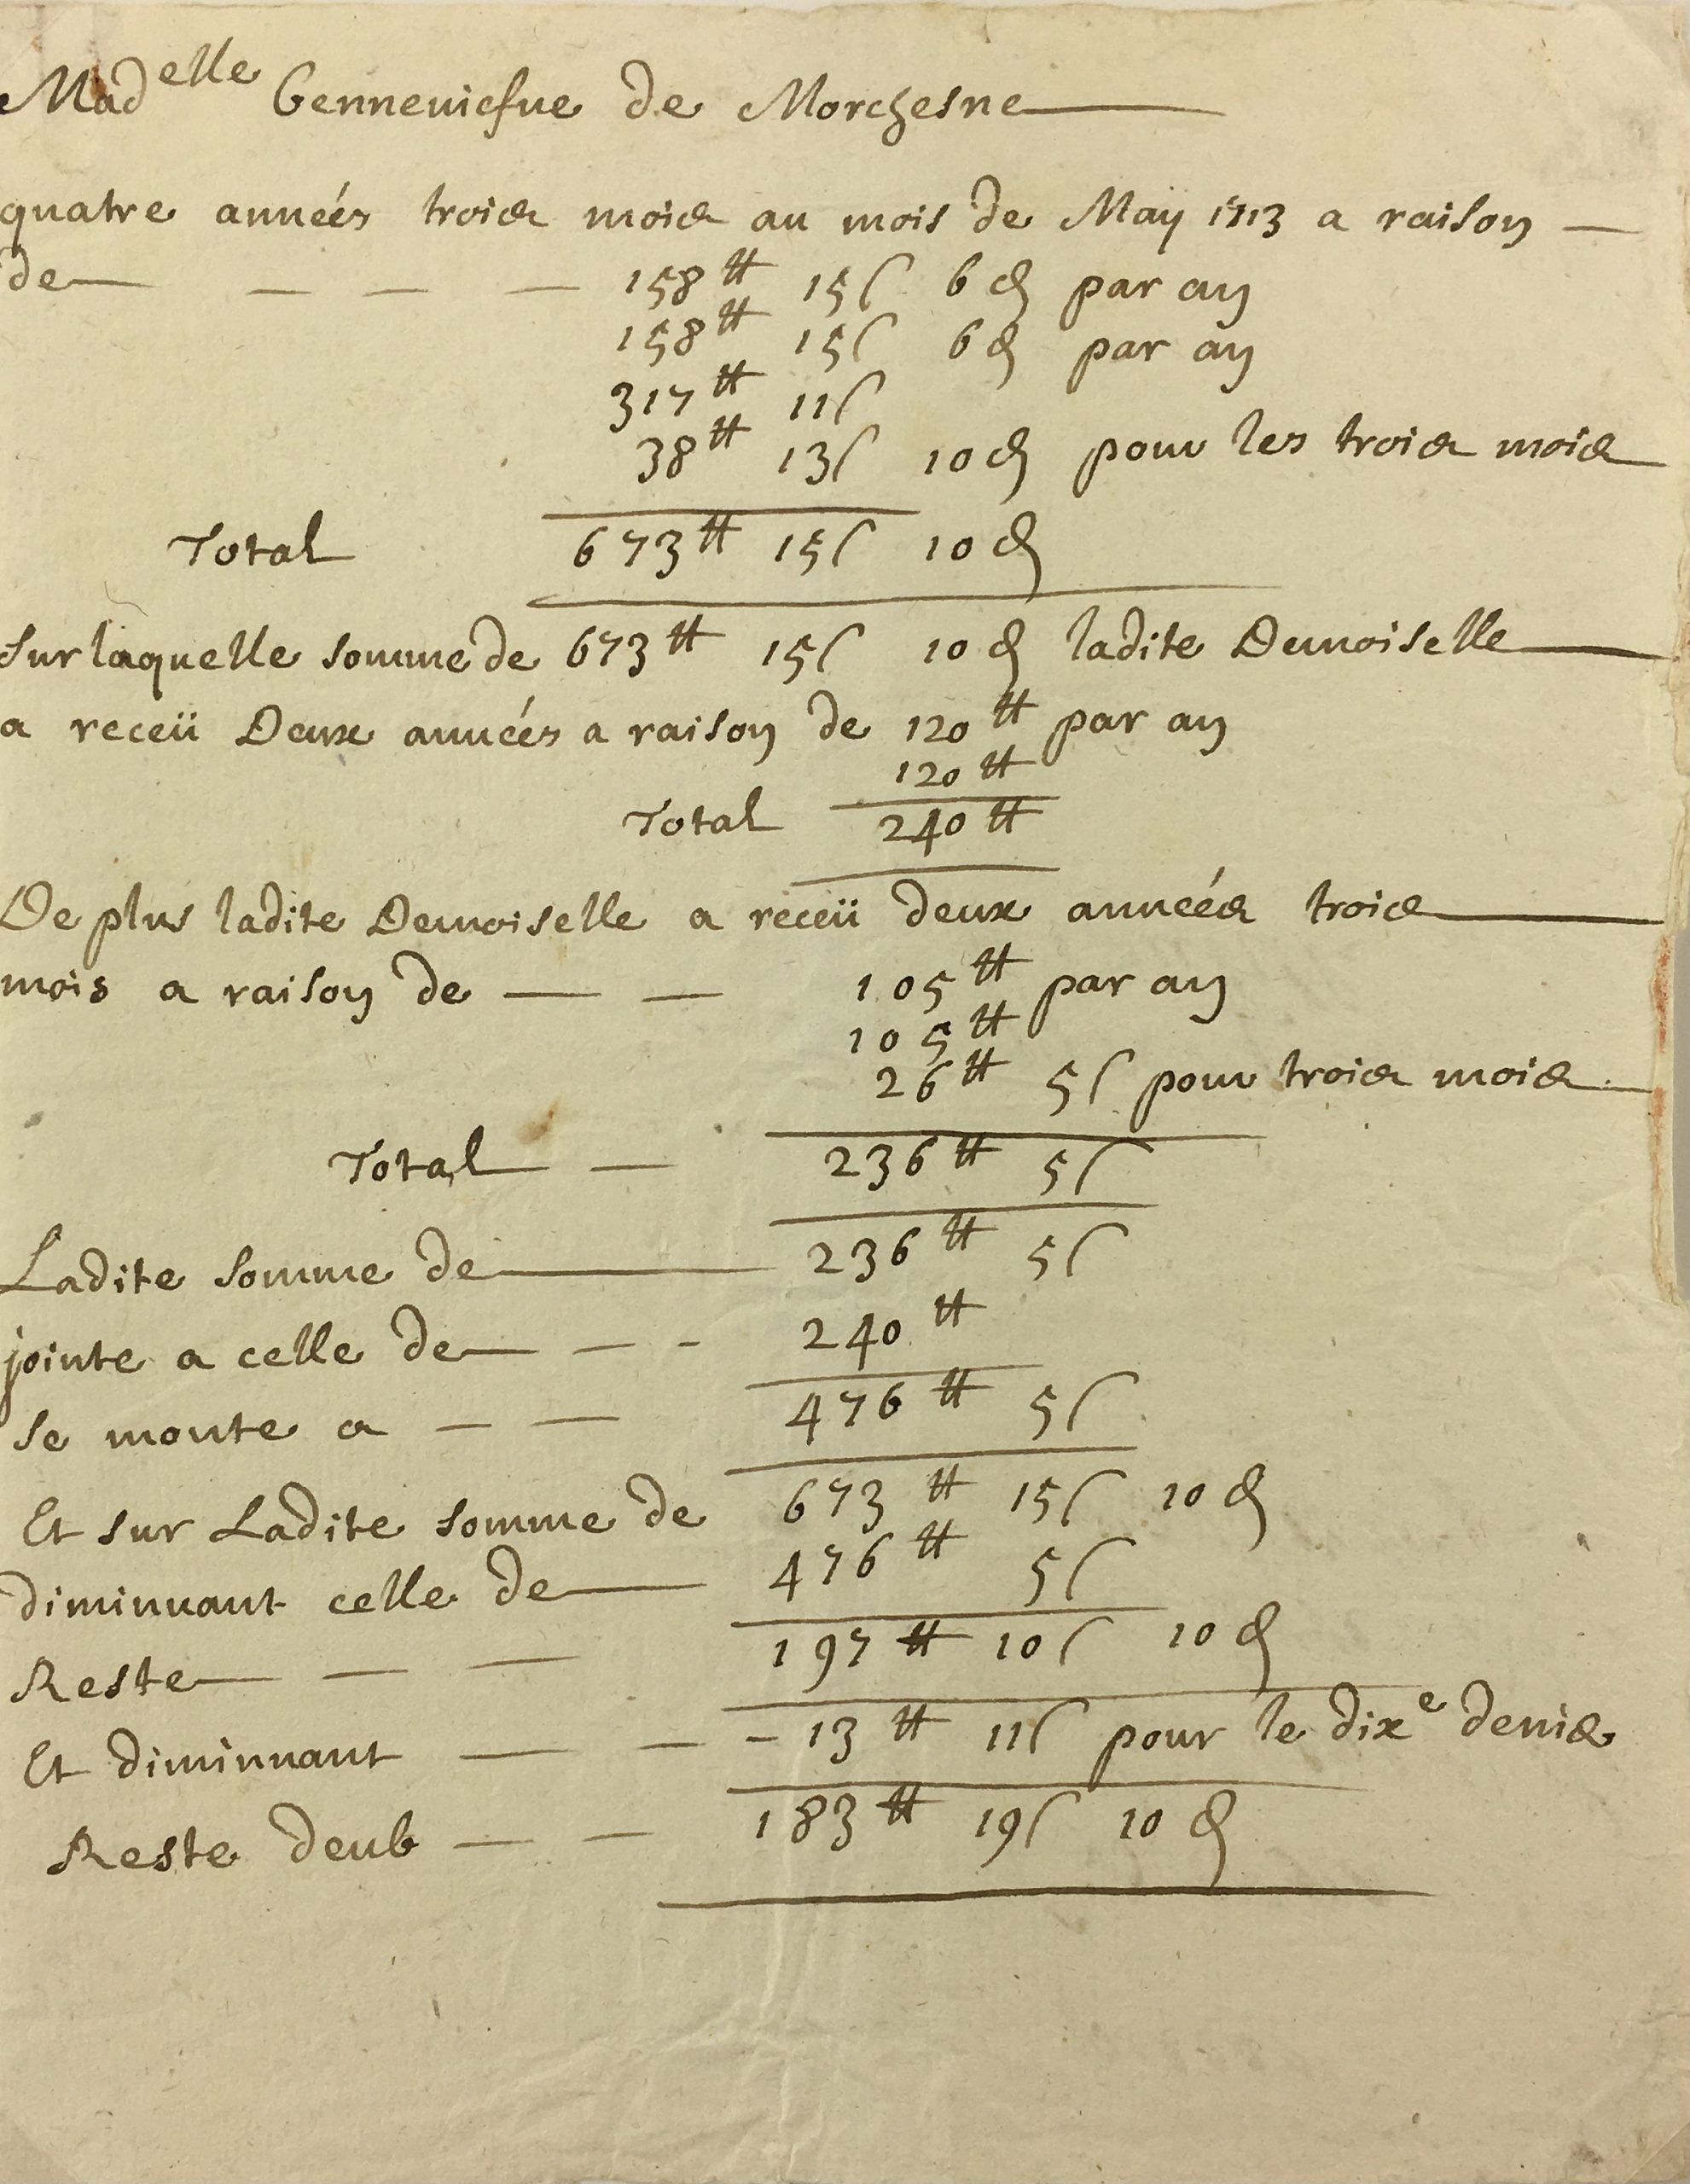 Madelle Genneuiefue de Morchesne
quatre années trois mois au mois de May 1713 a raison
de 158 ₶ 15 s 6 d par an
158 ₶ 15 s 6 d par an
317 ₶ 11 s
38 ₶ 13 s 10 d pour les trois mois
Total 673 ₶ 15 s 10 d
Sur laquelle somme de 673 ₶ 15 s 10 d ladite Demoiselle
a receü Deux années a raison de 120 ₶ par an
120 ₶
Total 240 ₶
De plus ladite Demoiselle a receü deux années trois
mois a raison de 105 ₶ par an
105 ₶
26 ₶ 5 s pour trois mois
Total 236 ₶ 5 s
Ladite somme de 236 ₶ 5 s
jointe a celle de 240 ₶
se monte a 476 ₶ 5 s
Et sur Ladite somme de 673 ₶ 15 s 10 d
diminuant celle de 476 ₶ 5 s
Reste 197 ₶ 10 s 10 d
Et diminuant - 13 ₶ 11 s pour le dixe denier
Reste deub 183 ₶ 19 s 10 d